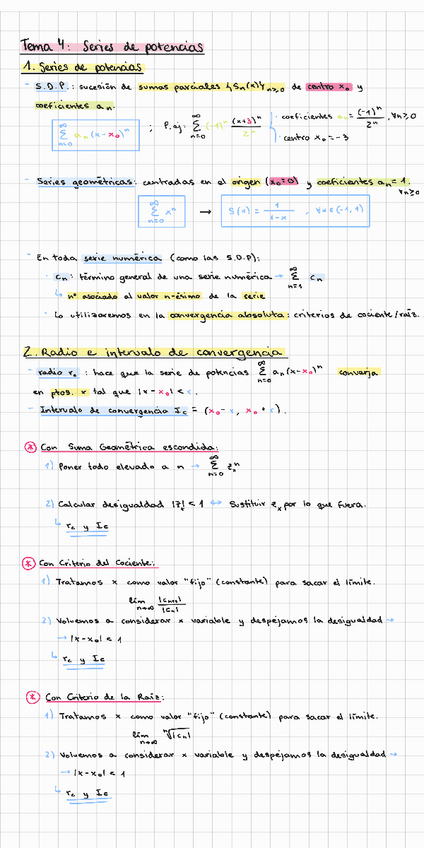 Tema 4: Series de potencias
1. Series de potencias
- S.D.P.: sucesión de sumas parciales {Sₙ(x)}ₙ≥₀ de centro x₀ y
coeficientes aₙ.
∑_{n=0}^{∞} aₙ(x-x₀)ⁿ ; P. ej: ∑_{n=0}^{∞} (-1)ⁿ (x+3)ⁿ/2ⁿ · coeficientes aₙ = (-1)ⁿ/2ⁿ, ∀n≥0
· centro x₀ = -3
- Series geométricas: centradas en el origen (x₀=0) y coeficientes aₙ = 1, ∀n≥0
∑_{n=0}^{∞} xⁿ → S(x) = 1/1-x , ∀x∈(-1,1)
- En toda serie numérica (como las S.D.P):
· cₙ: término general de una serie numérica → ∑_{n=1}^{∞} cₙ
↳ nº asociado al valor n-ésimo de la serie
· Lo utilizaremos en la convergencia absoluta: criterios de cociente/raíz.
2. Radio e intervalo de convergencia
- radio r꜀: hace que la serie de potencias ∑_{n=0}^{∞} aₙ(x-x₀)ⁿ converja
en ptos. x tal que |x-x₀| < r.
- Intervalo de convergencia I꜀ = (x₀ - r, x₀ + r).
* Con Suma Geométrica escondida:
1) Poner todo elevado a n → ∑_{n=0}^{∞} zₓⁿ
2) Calcular desigualdad |zₓ| < 1 ↔ Sustituir zₓ por lo que fuera.
↳ r꜀ y I꜀
* Con Criterio del Cociente:
1) Tratamos x como valor "fijo" (constante) para sacar el límite.
lím_{n→∞} |cₙ₊₁|/|cₙ|
2) Volvemos a considerar x variable y despejamos la desigualdad →
→ |x-x₀| < 1
↳ r꜀ y I꜀
* Con Criterio de la Raíz:
1) Tratamos x como valor "fijo" (constante) para sacar el límite.
lím_{n→∞} ⁿ√|cₙ|
2) Volvemos a considerar x variable y despejamos la desigualdad →
→ |x-x₀| < 1
↳ r꜀ y I꜀